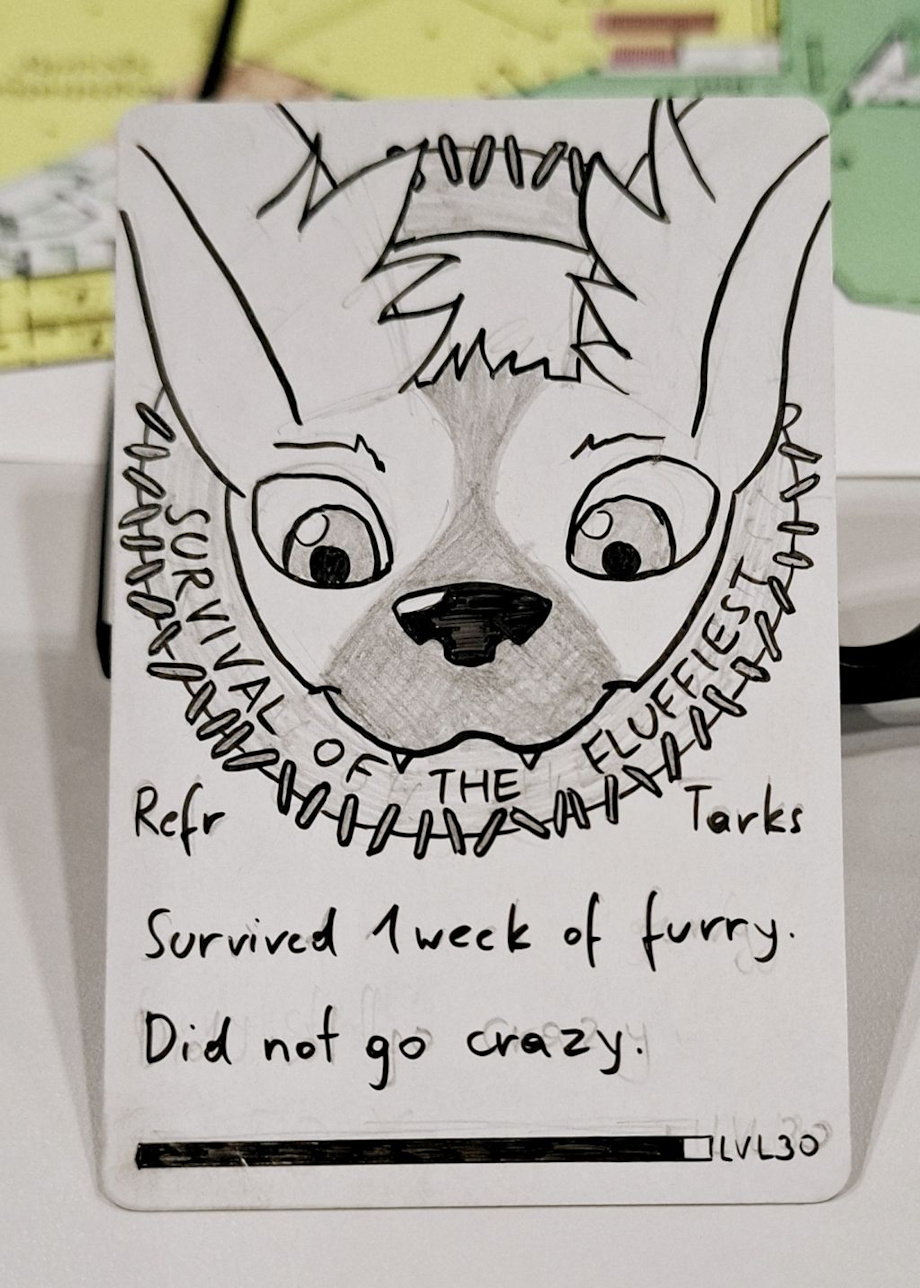 SURVIVAL OF THE FLUFFIEST
Refr Tarks
Survived 1 week of furry.
Did not go crazy.
LVL30